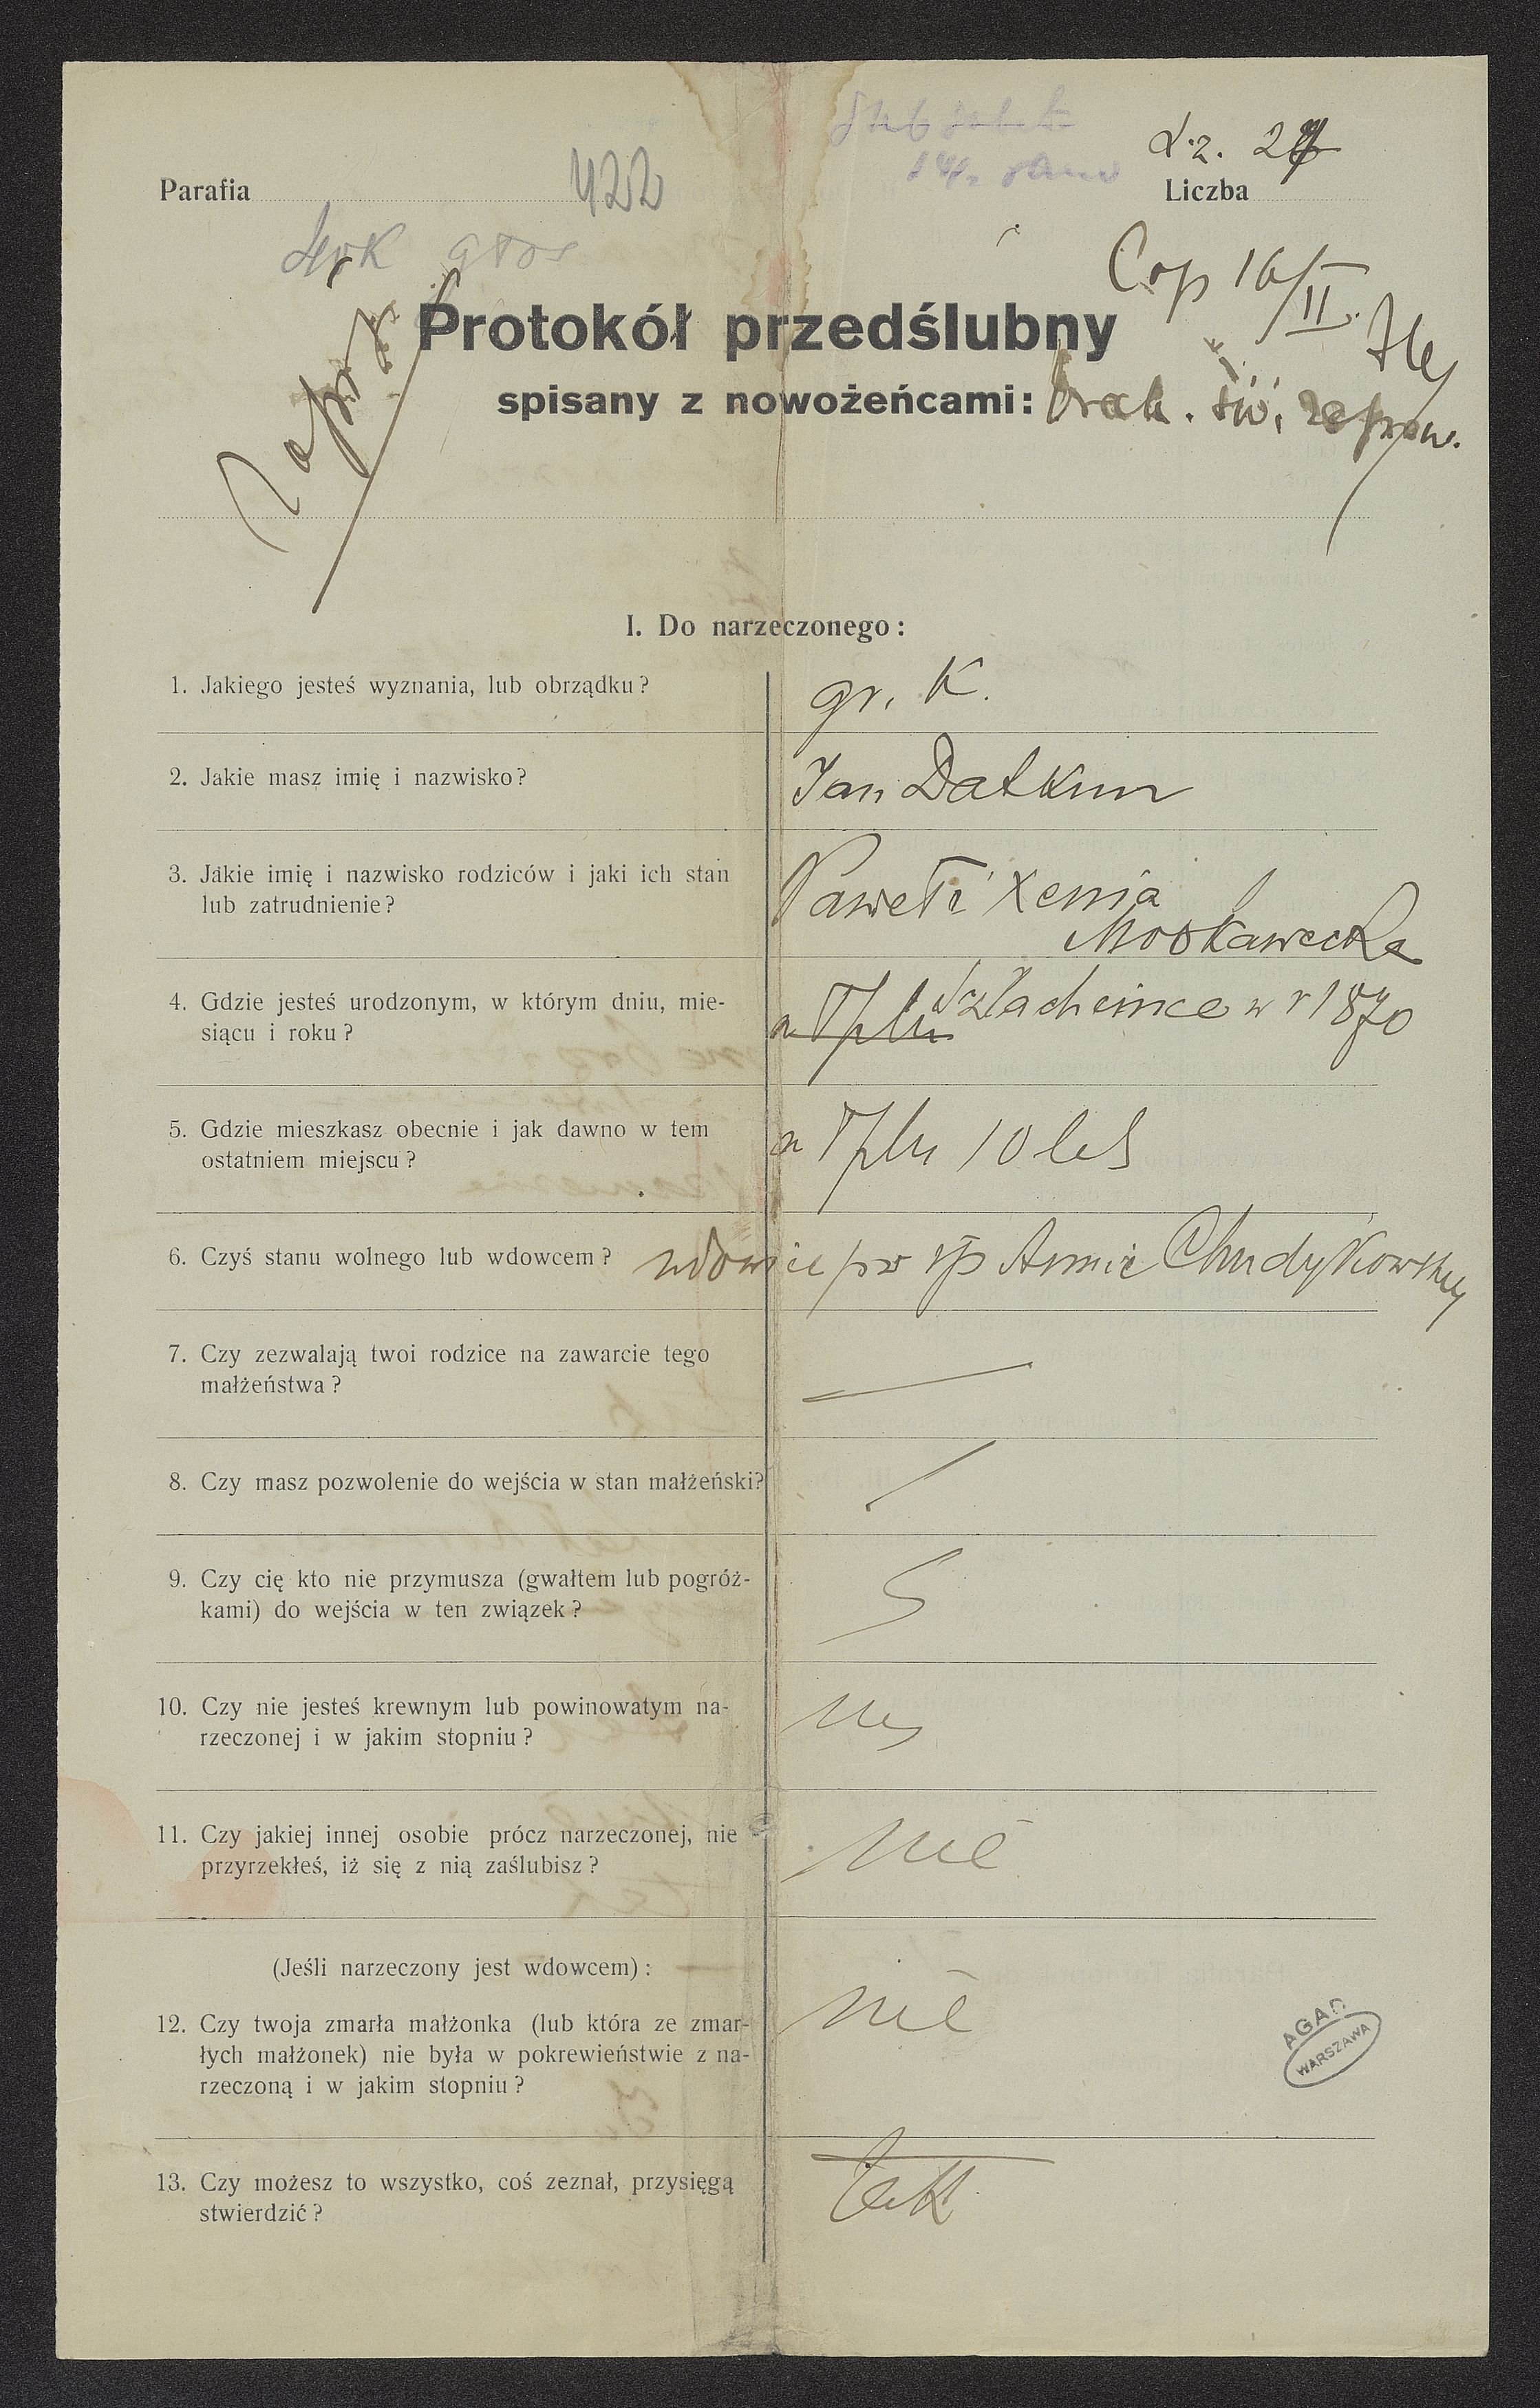 L.z. 27
Parafia 422 Liczba
Cop 16/II.
Zapr.
Protokół przedślubny
spisany z nowożeńcami:
brak. św. zapow.
I. Do narzeczonego:
1. Jakiego jesteś wyznania, lub obrządku? gr. K.
2. Jakie masz imię i nazwisko? Jan Datkun
3. Jakie imię i nazwisko rodziców i jaki ich stan Paweł i Xenia
lub zatrudnienie? Moskawecka
4. Gdzie jesteś urodzonym, w którym dniu, mie- w Tplu Szlachcince w r 1870
siącu i roku?
5. Gdzie mieszkasz obecnie i jak dawno w tem w Tplu 10 lat
ostatniem miejscu?
6. Czyś stanu wolnego lub wdowcem? wdowiec po śp Annie Chudykowskiej
7. Czy zezwalają twoi rodzice na zawarcie tego
małżeństwa? —
8. Czy masz pozwolenie do wejścia w stan małżeński?
9. Czy cię kto nie przymusza (gwałtem lub pogróż-
kami) do wejścia w ten związek?
10. Czy nie jesteś krewnym lub powinowatym na- nie
rzeczonej i w jakim stopniu?
11. Czy jakiej innej osobie prócz narzeczonej, nie nie
przyrzekłeś, iż się z nią zaślubisz?
(Jeśli narzeczony jest wdowcem):
12. Czy twoja zmarła małżonka (lub która ze zmar- nie
łych małżonek) nie była w pokrewieństwie z na-
rzeczoną i w jakim stopniu?
AGAD
WARSZAWA
13. Czy możesz to wszystko, coś zeznał, przysięgą tak
stwierdzić?